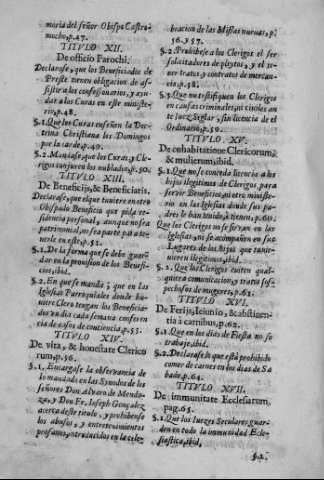 moria del señor Obispo Castro-
mocho, p.47.
TITVLO XII.
De officio Parochi.
Declarase, que los Beneficiados de
Preste tienen obligacion de as-
sistir a los confessonarios, y ayu-
dar a los Curas en este ministe-
rio, p.48.
§.1. Que los Curas enseñen la Doc-
trina Christiana los Domingos
por la tarde, p.49.
§.2. Mandase, que los Curas, y Cle-
rigos conjuren los nublados, p.50.
TITVLO XIII.
De Beneficijs, & Beneficiatis.
Declarase, que el que tuviere en este
Obispado Beneficio que pida re-
sidencia personal, aunque no sea
patrimonial, no sea parte para te-
nerle en este, p.52.
§.1. De la forma que se debe guar-
dar en la provision de los Benefi-
cios, ibid.
§.2. En que se manda, que en las
Iglesias Parroquiales donde hu-
viere Clero tengan los Beneficia-
dos vn dia cada semana conferen-
cia de casos de conciencia, p.55.
TITVLO XIV.
De vita, & honestate Clerico
rum, p.56.
§.1. Encargase la observancia de
lo mandado en las Synodos de los
señores Don Alvaro de Mendo-
za, y Don Fr. Ioseph Gonçalez
acerca deste titulo, y prohibense
los abusos, y entretenimientos
profanos, introducidos en la cele-
bracion de las Missas nuevas, p.
56. y 57.
§.2. Prohibese a los Clerigos el ser
solicitadores de pleytos, y el te-
ner tratos y contratos de mercan-
cia, p.58.
§.3. Que no testifiquen los Clerigos
en causas criminales, ni civiles an-
te Iuez Seglar, sin licencia de el
Ordinario, p.59.
TITVLO XV.
De cohabitatione Clericorum,
& mulierum, ibid.
§.1. Que no se conceda licencia a los
hijos ilegitimos de Clerigos, para
servir Beneficio, ni otro ministe-
rio en las Iglesias donde sus pa-
dres le han tenido, ò tienen, p.60.
Que los Clerigos no se sirvan en las
Iglesias, ni se acompañen en sus
Lugares de los hijos que tuvie-
ren ilegitimos, ibid.
§.2. Que los Clerigos eviten qual-
quiera comunicacion, y trato sos-
pechoso de mugeres, p.61.
TITVLO XVI.
De Ferijs, Ieiunio, & abstinen-
tia à carnibus, p.62.
§.1. Que en los dias de Fiesta no se
trabaje, ibid.
§.2. Declarase lo que està prohibido
comer de carnes en los dias de Sa-
bado, p.64.
TITVLO XVII.
De immunitate Ecclesiarum,
pag.65.
§.1. Que los Iuezes Seculares guar-
den en todo la immunidad Ecle-
siastica, ibid.
§.2.